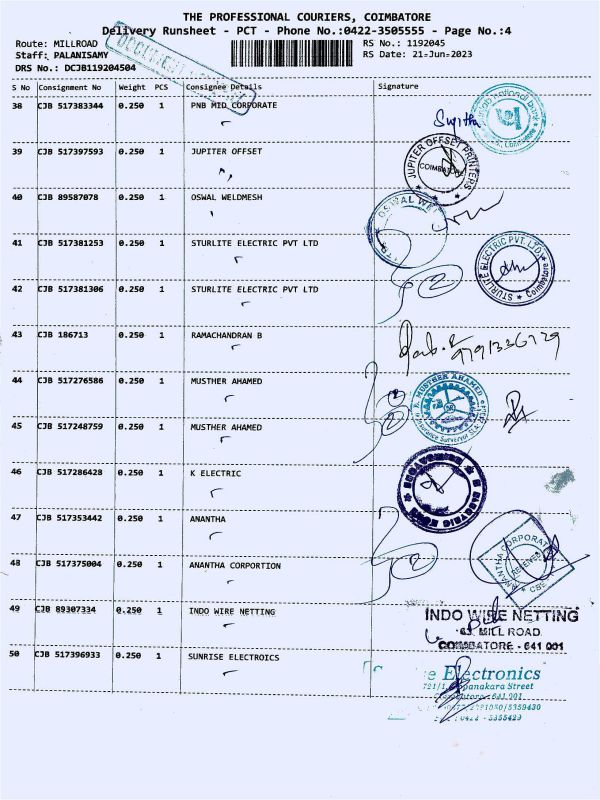 THE PROFESSIONAL COURIERS, COIMBATORE
Delivery Runsheet - PCT - Phone No.:0422-3505555 - Page No.:4
Route: MILLROAD RS No.: 1192045
Staff: PALANISAMY RS Date: 21-Jun-2023
DRS No.: DCJB119204504
DOCUMENT
S No Consignment No Weight PCS Consignee Details Signature
38 CJB 517383344 0.250 1 PNB MID CORPORATE
Sujitha
39 CJB 517397593 0.250 1 JUPITER OFFSET
JUPITER OFFSET PRINTERS COIMBATORE
40 CJB 89587078 0.250 1 OSWAL WELDMESH
OSWAL WEL
41 CJB 517381253 0.250 1 STURLITE ELECTRIC PVT LTD
STURLITE ELECTRIC PVT. LTD. Coimbatore
42 CJB 517381306 0.250 1 STURLITE ELECTRIC PVT LTD
2
43 CJB 186713 0.250 1 RAMACHANDRAN B
9791336729
44 CJB 517276586 0.250 1 MUSTHER AHAMED
MUSTHER AHAMED
Insurance Surveyor
45 CJB 517248759 0.250 1 MUSTHER AHAMED
46 CJB 517286428 0.250 1 K ELECTRIC
47 CJB 517353442 0.250 1 ANANTHA
48 CJB 517375004 0.250 1 ANANTHA CORPORTION
2
ANANTHA CORPORATION
RECEIVED
CBE
49 CJB 89307334 0.250 1 INDO WIRE NETTING
INDO WIRE NETTING
63, MILL ROAD.
COIMBATORE - 641 001
50 CJB 517396933 0.250 1 SUNRISE ELECTROICS
e Electronics
721/1, panakara Street
Coimbatore - 641 001
/5359430
: 0422 - 5355429